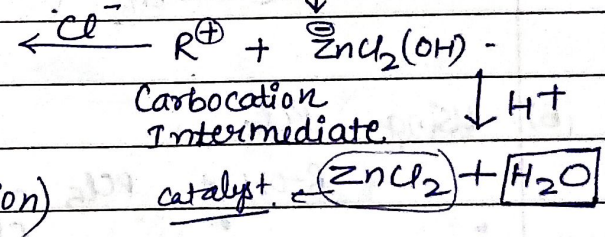 ← Cl⁻ R⊕ + ⊖ZnCl₂(OH) -
Carbocation
Intermediate
↓ H+
on) catalyst ← ZnCl₂ + H₂O